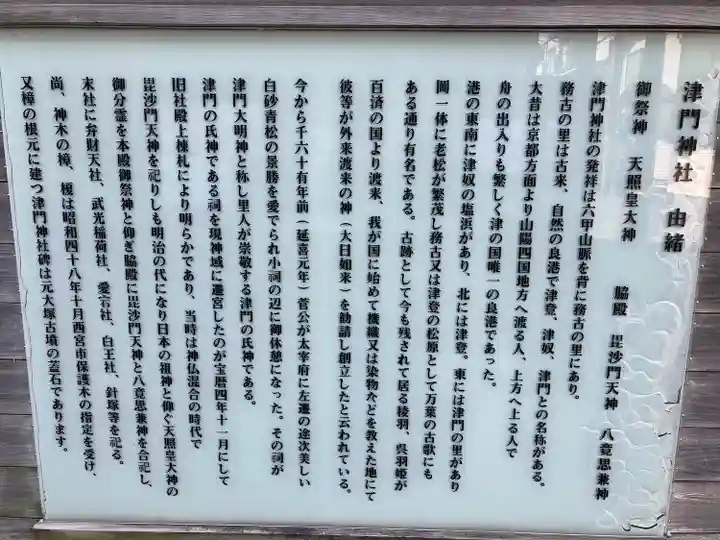 津門神社 由緒
御祭神 天照皇大神 脇殿 毘沙門天神 八意思兼神
津門神社の発祥は六甲山脈を背に務古の里にあり。
務古の里は古来、自然の良港で津登、津奴、津門との名称がある。
大昔は京都方面より山陽四国地方へ渡る人、上方へ上る人で
舟の出入りも繁しく津の国唯一の良港であった。
港の東南に津奴の塩浜があり、北には津登。東には津門の里があり
岡一体に老松が繁茂し務古又は津登の松原として万葉の古歌にも
ある通り有名である。古跡として今も残されて居る綾羽、呉羽姫が
百済の国より渡来、我が国に始めて機織又は染物などを教えた地にて
彼等が外来渡来の神（大日如来）を勧請し創立したと云われている。
今から千六十有年前（延喜元年）菅公が太宰府に左遷の途次美しい
白砂青松の景勝を愛でられ小祠の辺に御休憩になった。その祠が
津門大明神と称し里人が崇敬する津門の氏神である。
津門の氏神である祠を現神域に遷宮したのが宝暦四年十一月にして
旧社殿上棟札により明らかであり、当時は神仏混合の時代で
毘沙門天神を祀りしも明治の代になり日本の祖神と仰ぐ天照皇大神の
御分霊を本殿御祭神と仰ぎ脇殿に毘沙門天神と八意思兼神を合祀し、
末社に弁財天社、武光稲荷社、愛宕社、白王社、針塚等を祀る。
尚、神木の樟、榎は昭和四十八年十月西宮市保護木の指定を受け、
又樟の根元に建つ津門神社碑は元大塚古墳の蓋石であります。